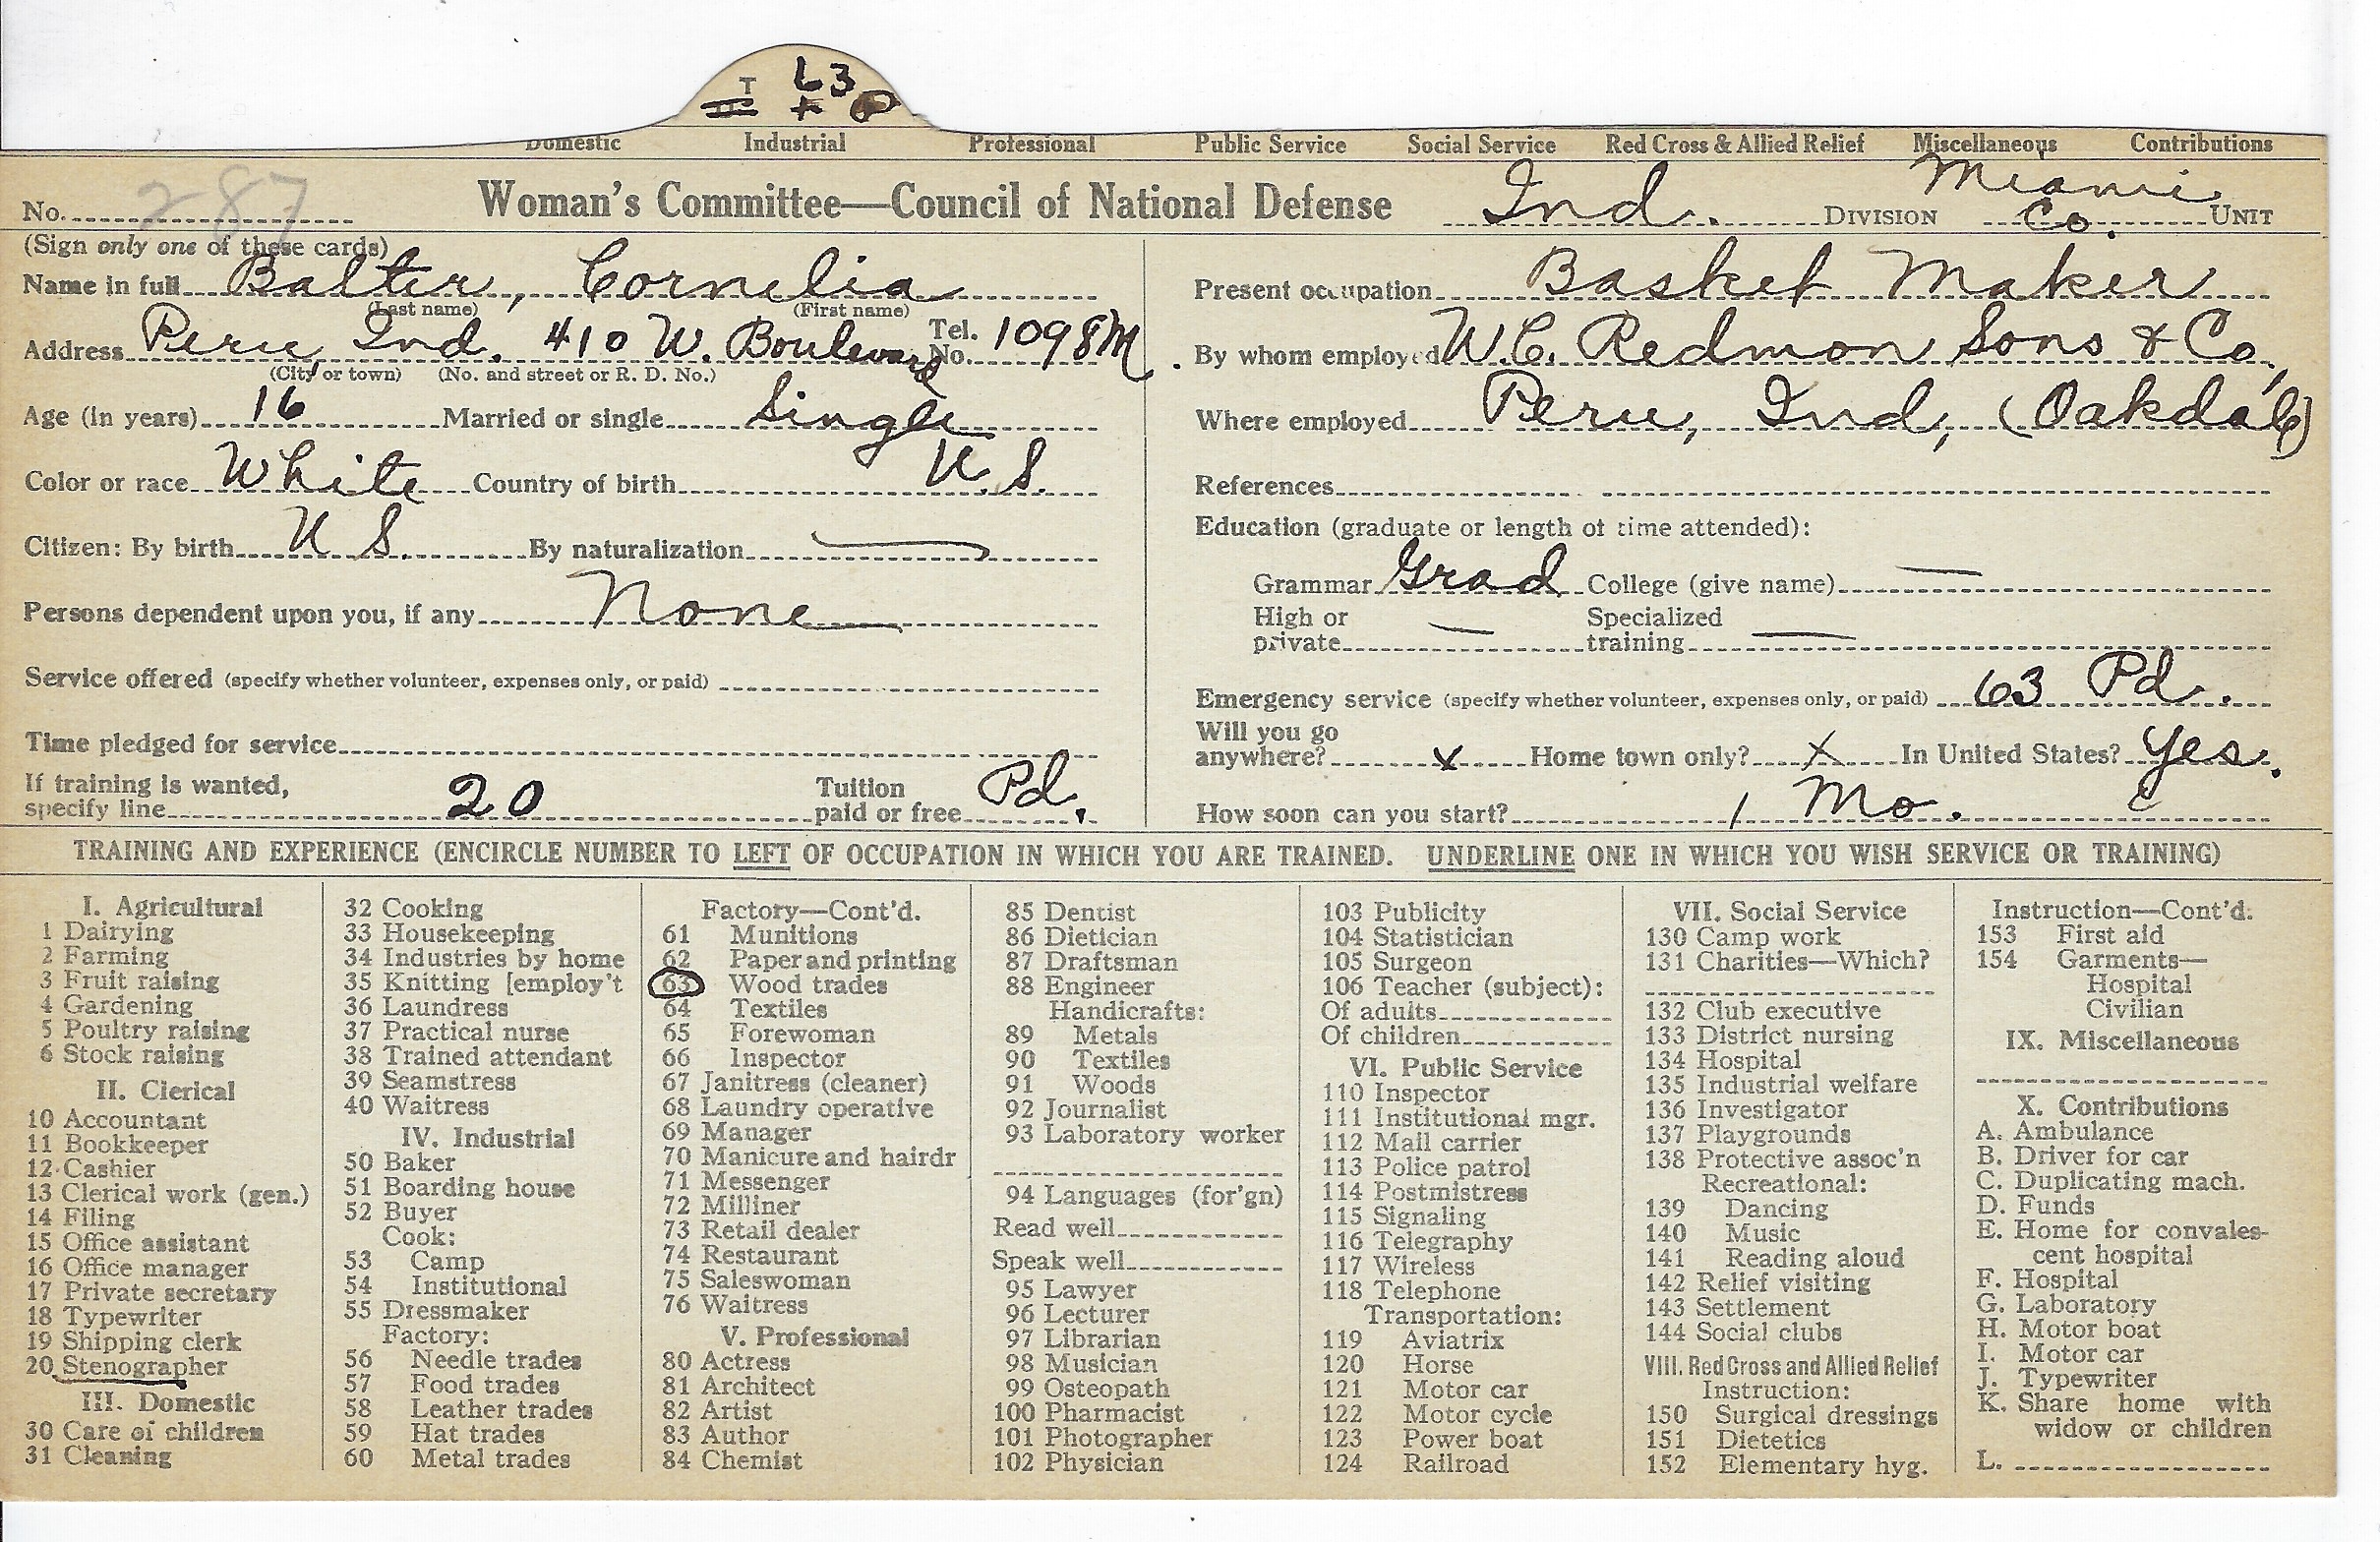 T 63
Domestic Industrial Professional Public Service Social Service Red Cross & Allied Relief Miscellaneous Contributions
No. 287 Woman's Committee—Council of National Defense Ind. DIVISION Miami Co. UNIT
(Sign only one of these cards)
Name in full Balter, Cornelia
(Last name) (First name)
Address Peru, Ind. 410 W. Boulevard Tel. No. 1098M
(City or town) (No. and street or R. D. No.)
Age (in years) 16 Married or single Single
Color or race White Country of birth U.S.
Citizen: By birth U S. By naturalization —
Persons dependent upon you, if any None
Service offered (specify whether volunteer, expenses only, or paid)
Time pledged for service
If training is wanted, specify line 20 Tuition paid or free Pd.
Present occupation Basket Maker
By whom employed W.C. Redmon Sons & Co.,
Where employed Peru, Ind, (Oakdale)
References
Education (graduate or length of time attended):
Grammar Grad College (give name) —
High or private — Specialized training —
Emergency service (specify whether volunteer, expenses only, or paid) 63 Pd.
Will you go anywhere? x Home town only? x In United States? Yes.
How soon can you start? 1 Mo.
TRAINING AND EXPERIENCE (ENCIRCLE NUMBER TO LEFT OF OCCUPATION IN WHICH YOU ARE TRAINED. UNDERLINE ONE IN WHICH YOU WISH SERVICE OR TRAINING)
I. Agricultural
1 Dairying
2 Farming
3 Fruit raising
4 Gardening
5 Poultry raising
6 Stock raising
II. Clerical
10 Accountant
11 Bookkeeper
12 Cashier
13 Clerical work (gen.)
14 Filing
15 Office assistant
16 Office manager
17 Private secretary
18 Typewriter
19 Shipping clerk
20 Stenographer
III. Domestic
30 Care of children
31 Cleaning
32 Cooking
33 Housekeeping
34 Industries by home
35 Knitting [employ't
36 Laundress
37 Practical nurse
38 Trained attendant
39 Seamstress
40 Waitress
IV. Industrial
50 Baker
51 Boarding house
52 Buyer
Cook:
53 Camp
54 Institutional
55 Dressmaker
Factory:
56 Needle trades
57 Food trades
58 Leather trades
59 Hat trades
60 Metal trades
Factory—Cont'd.
61 Munitions
62 Paper and printing
63 Wood trades
64 Textiles
65 Forewoman
66 Inspector
67 Janitress (cleaner)
68 Laundry operative
69 Manager
70 Manicure and hairdr
71 Messenger
72 Milliner
73 Retail dealer
74 Restaurant
75 Saleswoman
76 Waitress
V. Professional
80 Actress
81 Architect
82 Artist
83 Author
84 Chemist
85 Dentist
86 Dietician
87 Draftsman
88 Engineer
Handicrafts:
89 Metals
90 Textiles
91 Woods
92 Journalist
93 Laboratory worker
94 Languages (for'gn)
Read well
Speak well
95 Lawyer
96 Lecturer
97 Librarian
98 Musician
99 Osteopath
100 Pharmacist
101 Photographer
102 Physician
103 Publicity
104 Statistician
105 Surgeon
106 Teacher (subject):
Of adults
Of children
VI. Public Service
110 Inspector
111 Institutional mgr.
112 Mail carrier
113 Police patrol
114 Postmistress
115 Signaling
116 Telegraphy
117 Wireless
118 Telephone
Transportation:
119 Aviatrix
120 Horse
121 Motor car
122 Motor cycle
123 Power boat
124 Railroad
VII. Social Service
130 Camp work
131 Charities—Which?
132 Club executive
133 District nursing
134 Hospital
135 Industrial welfare
136 Investigator
137 Playgrounds
138 Protective assoc'n
Recreational:
139 Dancing
140 Music
141 Reading aloud
142 Relief visiting
143 Settlement
144 Social clubs
VIII. Red Cross and Allied Relief
Instruction:
150 Surgical dressings
151 Dietetics
152 Elementary hyg.
Instruction—Cont'd.
153 First aid
154 Garments—
Hospital
Civilian
IX. Miscellaneous
X. Contributions
A. Ambulance
B. Driver for car
C. Duplicating mach.
D. Funds
E. Home for convales-
cent hospital
F. Hospital
G. Laboratory
H. Motor boat
I. Motor car
J. Typewriter
K. Share home with
widow or children
L.